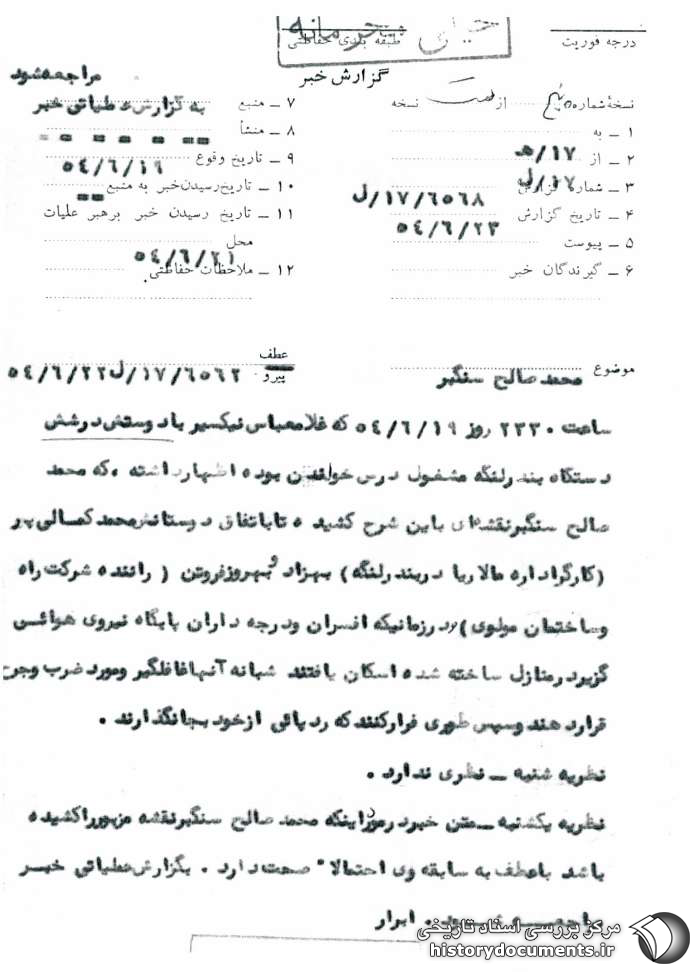 خیلی محرمانه
طبقه بندی حفاظتی
درجه فوریت
گزارش خبر
نسخهٔ شماره پنج از نسخه
۱ ــ به
۲ ــ از ۱۷/ﻫ
۳ ــ شماره گزارش ۱۷/ل
۶۵۶۸/۱۷/ل
۴ ــ تاریخ گزارش
۵۴/۶/۲۳
۵ ــ پیوست
۶ ــ گیرندگان خبر
مراجعه شود
۷ ــ منبع به گزارش عطیاتی خبر
۸ ــ منشأ
۹ ــ تاریخ وقوع ۵۴/۶/۱۹
۱۰ ــ تاریخ رسیدن خبر به منبع
۱۱ ــ تاریخ رسیدن خبر برهبر عملیات
محل ۵۴/۶/۲۱
۱۲ ــ ملاحظات حفاظتی
موضوع محمد صالح سنگبر
عطف
پیرو ۶۵۶۲/۱۷/ل ۵۴/۶/۲۲
ساعت ۲۳۳۰ روز ۵۴/۶/۱۹ که غلامعباس نیکسیر با دوستش درشش
دستگاه بندرلنگه مشغول درس خواندن بوده اظهارداشته ، که محمد
صالح سنگبرنقشه‌ای باین شرح کشیده تا باتفاق دوستانش محمد کمالی پور
(کارگراداره مالاریا دربندرلنگه) بهزاد و بهروزفروتن ( راننده شرکت راه
وساختمان مولوی) ودرزمانیکه افسران ودرجه داران پایگاه نیروی هوائی
گزیردرمنازل ساخته شده اسکان یافتند شبانه آنهاغافلگیر ومورد ضرب وجرح
قراردهند وسپس طوری فرارکنند که رد پائی ازخود بجانگذارند .
نظریه شنبه ــ نظری ندارد .
نظریه یکشنبه ــ متن خبردرمورداینکه محمد صالح سنگبرنقشه مزبورراکشیده
باشد باعطف به سابقه وی احتمالا" صحت دارد . بگزارش عطیاتی خبر
مراجعه شود . ابرار
مرکز بررسی اسناد تاریخی
historydocuments.ir